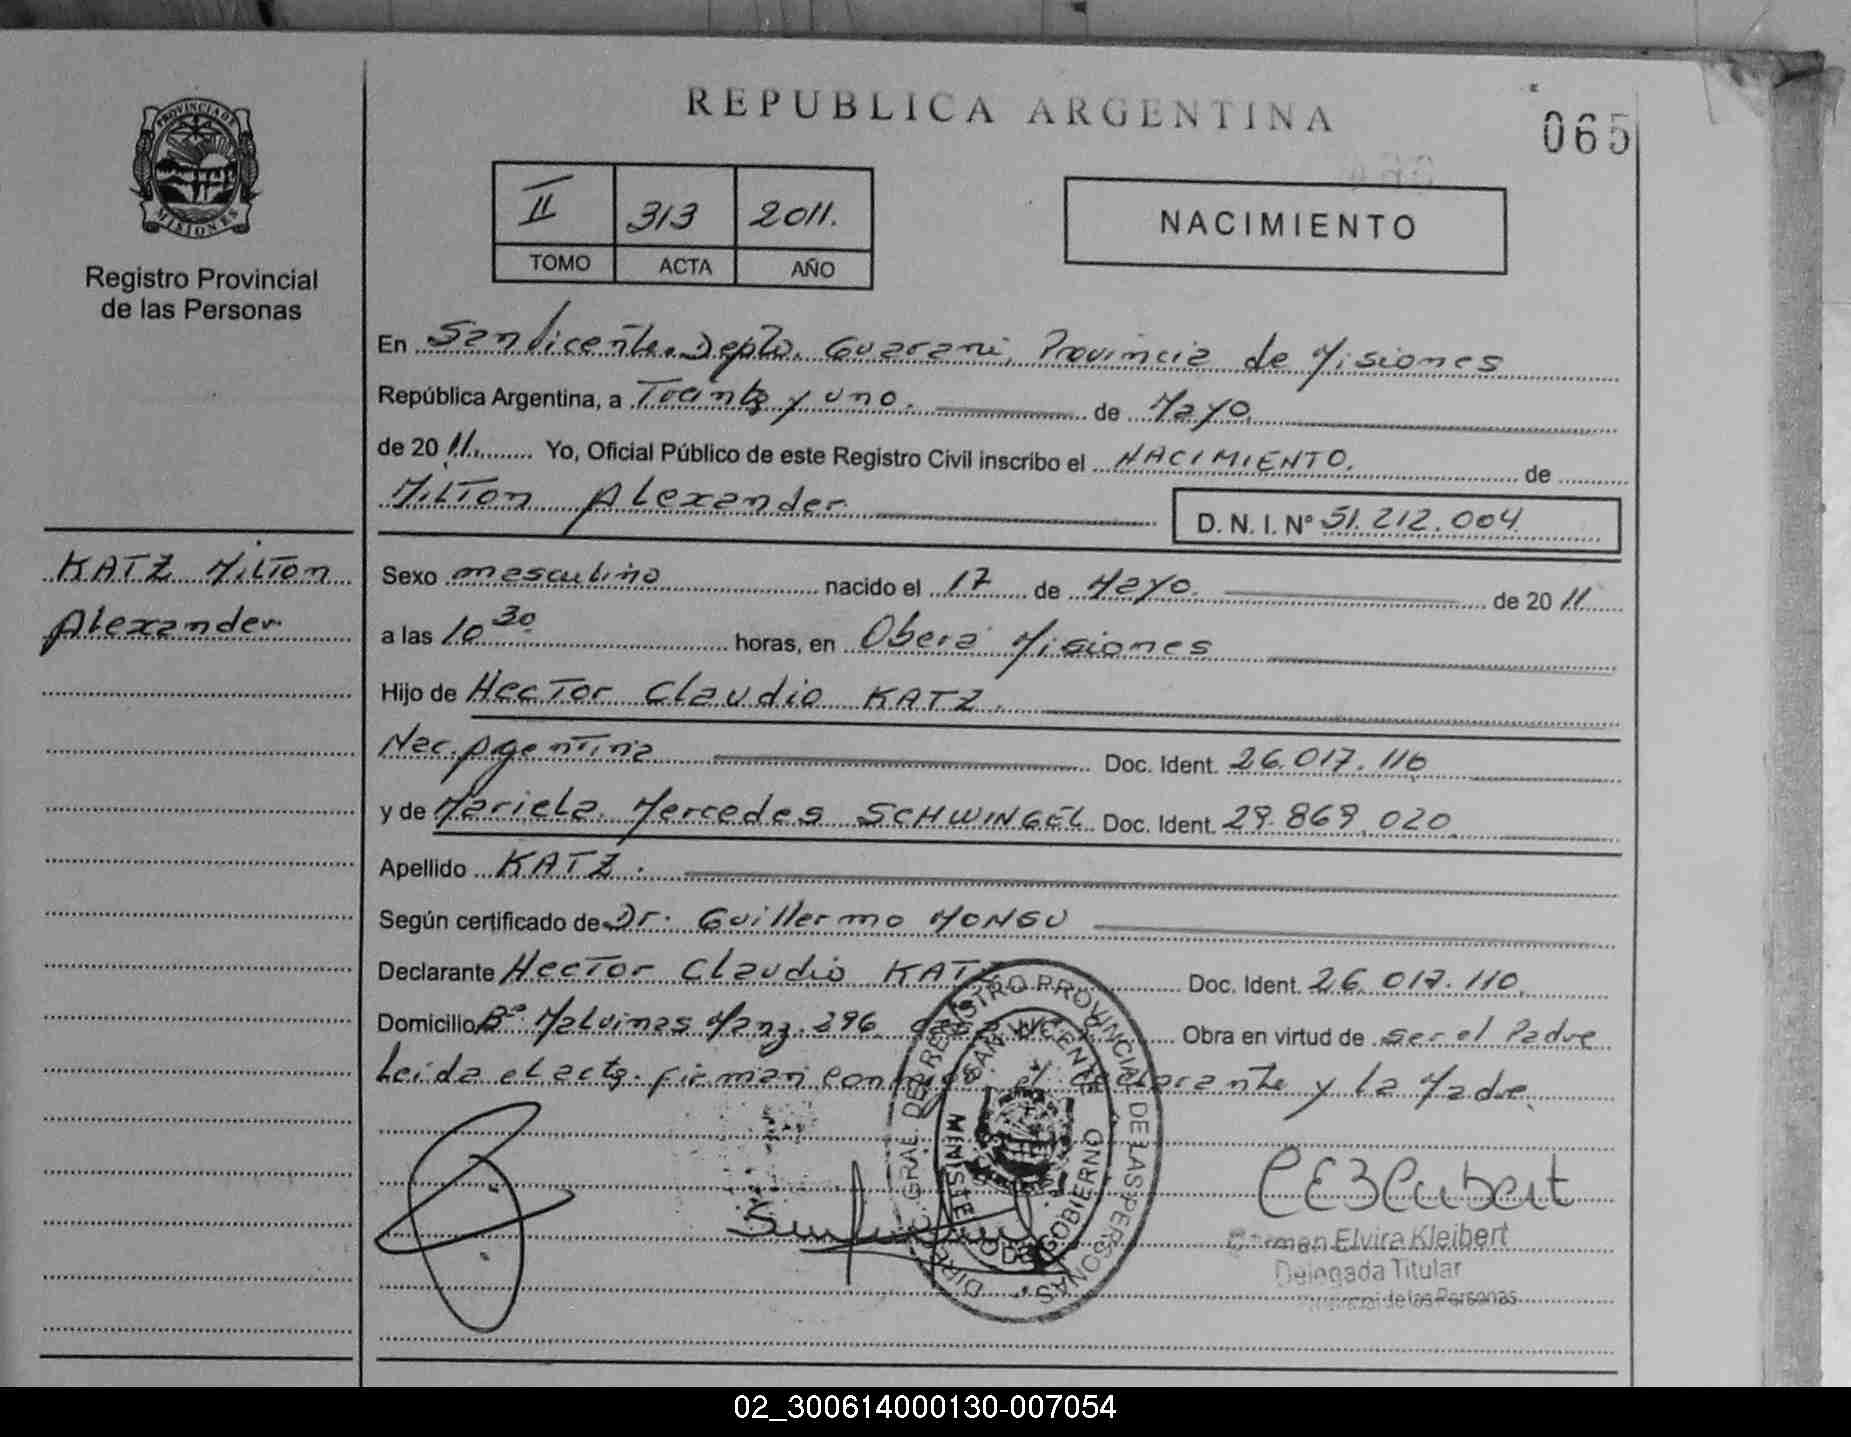 REPUBLICA ARGENTINA
065
PROVINCIA DE
MISIONES
Registro Provincial
de las Personas
II 313 2011.
TOMO ACTA AÑO
NACIMIENTO
En San Vicente. Depto. Guaraní, Provincia de Misiones
República Argentina, a Treinta y uno. de Mayo.
de 20 11. Yo, Oficial Público de este Registro Civil inscribo el NACIMIENTO. de
Milton Alexander.
D. N. I. Nº 51.212.004.
KATZ Milton
Alexander.
Sexo masculino nacido el 17 de Mayo. de 20 11
a las 10 30 horas, en Oberá Misiones
Hijo de Hector Claudio KATZ.
Nac. Argentina Doc. Ident. 26.017.110
y de Mariela Mercedes SCHWINGEL Doc. Ident. 29.869.020.
Apellido KATZ.
Según certificado de Dr. Guillermo MONGU
Declarante Hector Claudio KATZ Doc. Ident. 26.017.110.
Domicilio Bº Malvinas Manz. 296 Obra en virtud de ser el Padre
Leída el acta. firman el declarante y la Madre.
DIR. GRAL. DEL REGISTRO PROVINCIAL DE LAS PERSONAS
SAN VICENTE
MINISTE DE GOBIERNO
Carmen Elvira Kleibert
Delegada Titular
de las Personas
02_300614000130-007054